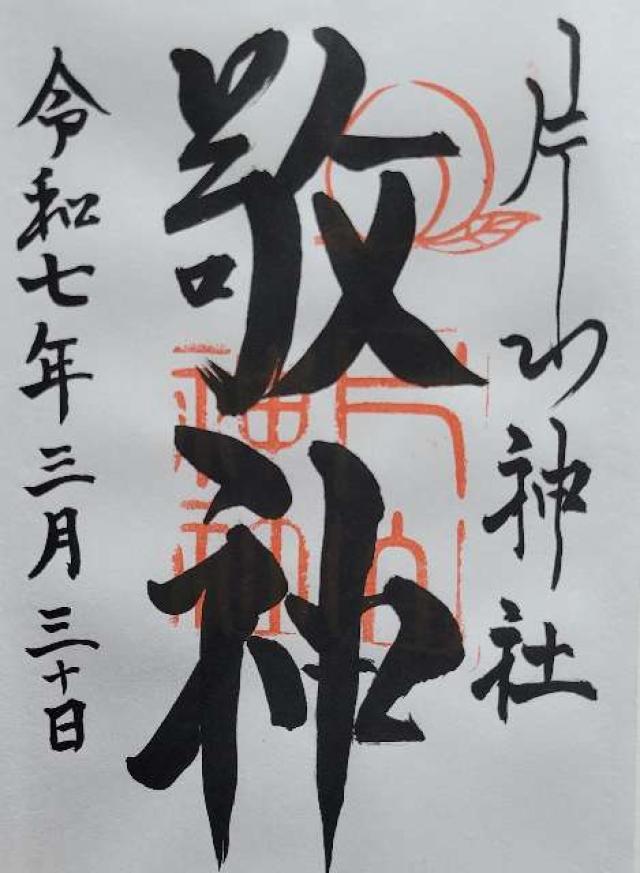 片山神社
敬神
令和七年三月三十日